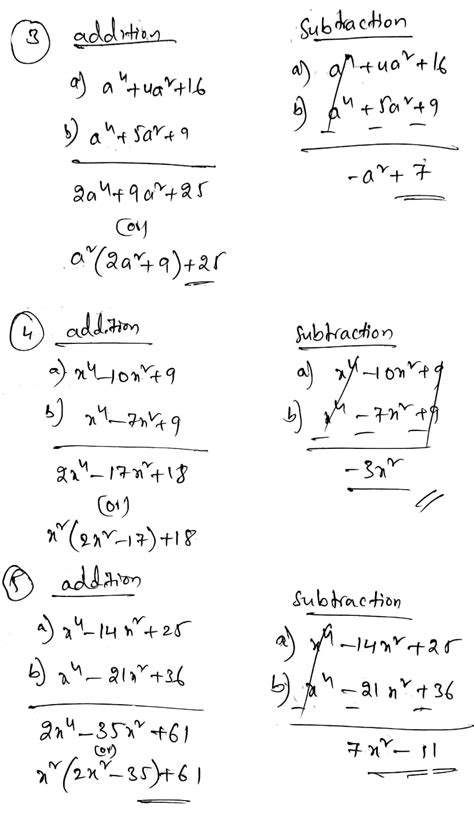 ③ addition
a) a⁴+4a²+16
b) a⁴+5a²+9
2a⁴+9a²+25
(or)
a²(2a²+9)+25
Subtraction
a) a⁴+4a²+16
b) a⁴+5a²+9
− − −
-a²+7
④ addition
a) x⁴-10x²+9
b) x⁴-7x²+9
2x⁴-17x²+18
(or)
x²(2x²-17)+18
Subtraction
a) x⁴-10x²+9
b) x⁴-7x²+9
-3x²
⑤ addition
a) x⁴-14x²+25
b) x⁴-21x²+36
2x⁴-35x²+61
(or)
x²(2x²-35)+61
Subtraction
a) x⁴-14x²+25
b) x⁴-21x²+36
7x²-11